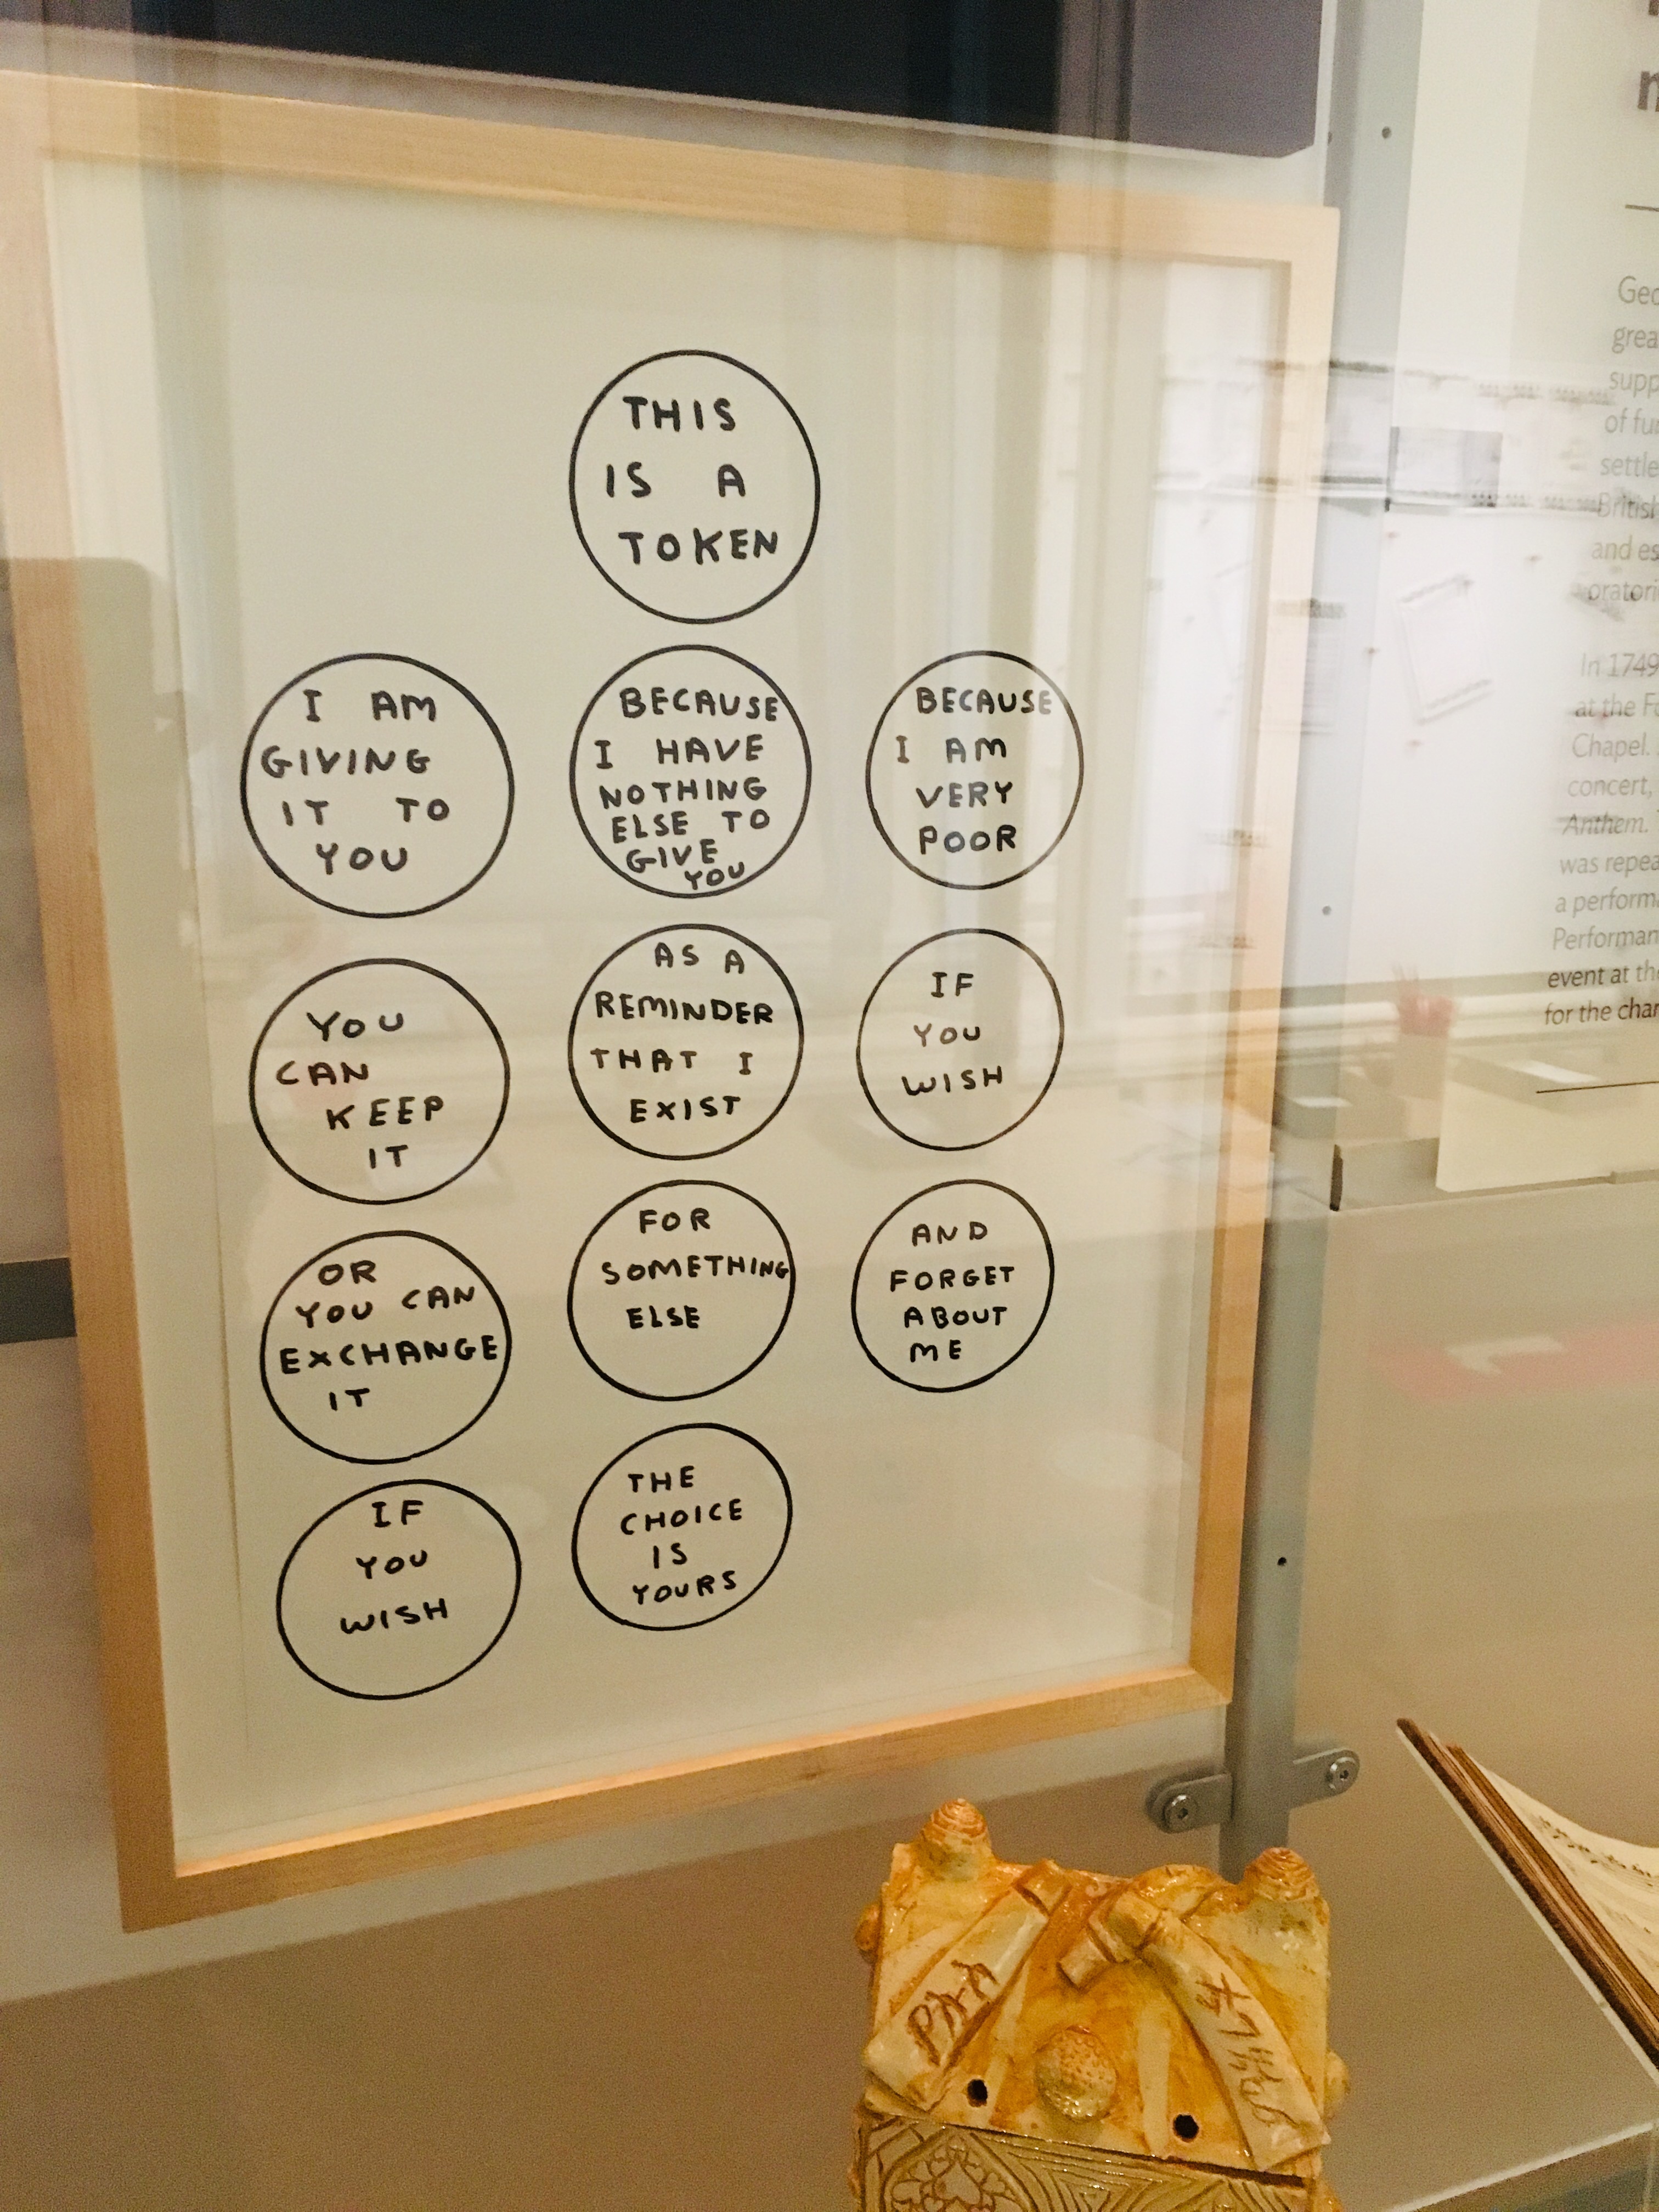 THIS
IS A
TOKEN
I AM
GIVING
IT TO
YOU
BECAUSE
I HAVE
NOTHING
ELSE TO
GIVE
YOU
BECAUSE
I AM
VERY
POOR
YOU
CAN
KEEP
IT
AS A
REMINDER
THAT I
EXIST
IF
YOU
WISH
OR
YOU CAN
EXCHANGE
IT
FOR
SOMETHING
ELSE
AND
FORGET
ABOUT
ME
IF
YOU
WISH
THE
CHOICE
IS
YOURS
of
settle
British
and
In 1749
at the
Chapel.
concert,
Anthem.
was
a
event at
for the